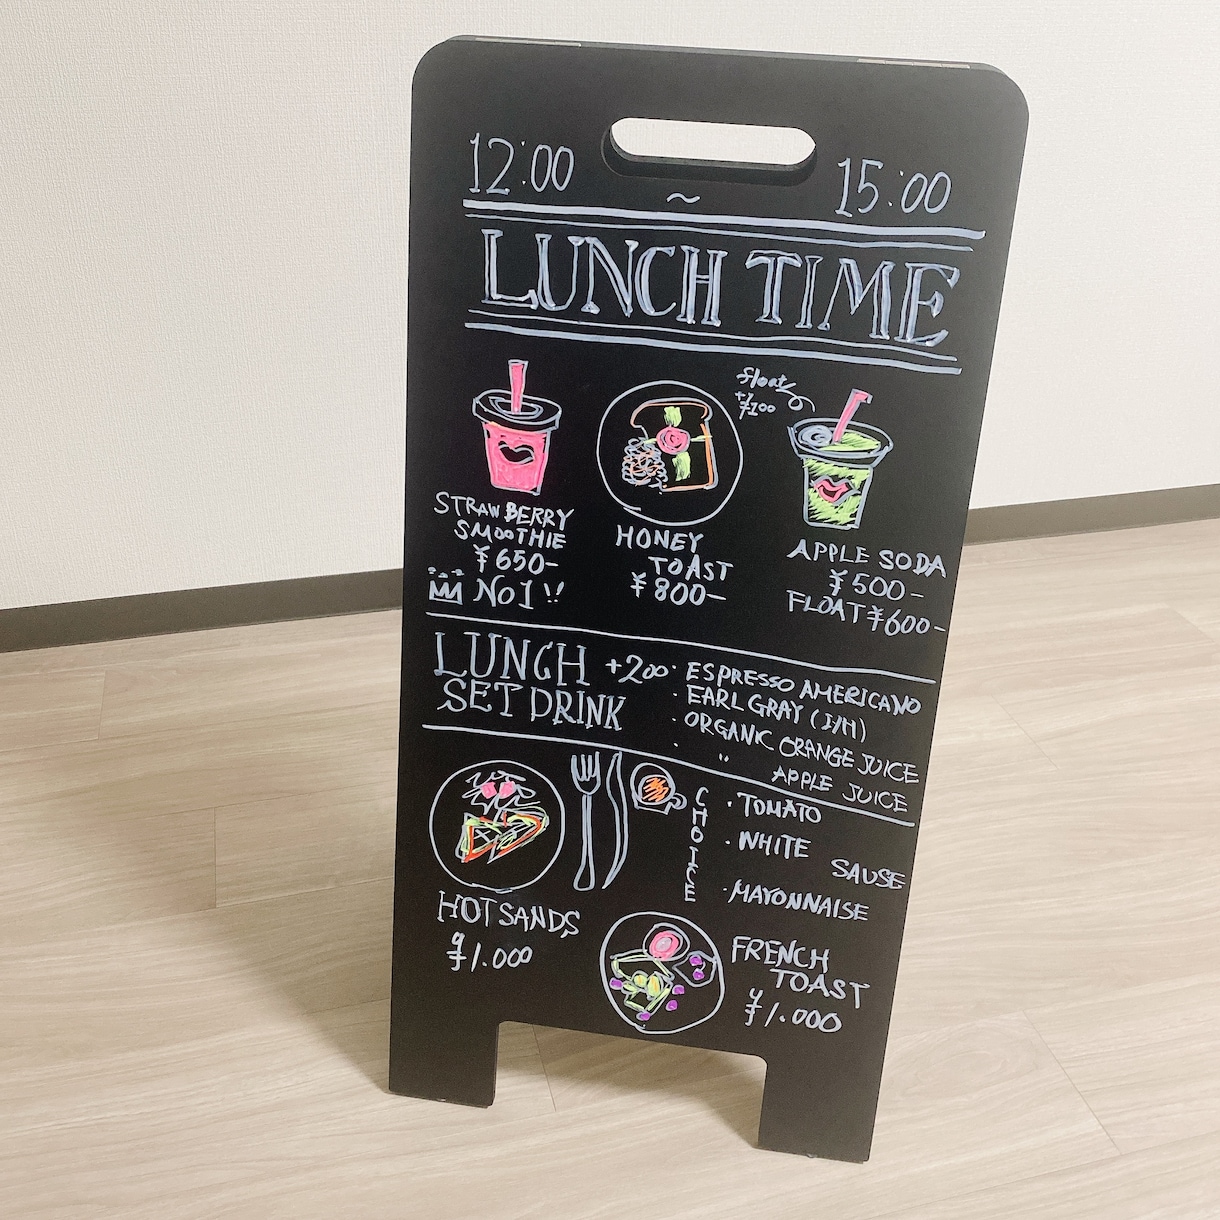 12:00 ~ 15:00
LUNCH TIME
float
+¥100
STRAWBERRY
SMOOTHIE
¥650-
No1!!
HONEY
TOAST
¥800-
APPLE SODA
¥500-
FLOAT ¥600-
LUNCH +200
SET DRINK
・ESPRESSO AMERICANO
・EARL GRAY (I/H)
・ORGANIC ORANGE JUICE
・ 〃 APPLE JUICE
CHOICE
・TOMATO
・WHITE
SAUSE
・MAYONNAISE
HOTSANDS
¥1.000
FRENCH
TOAST
¥1.000